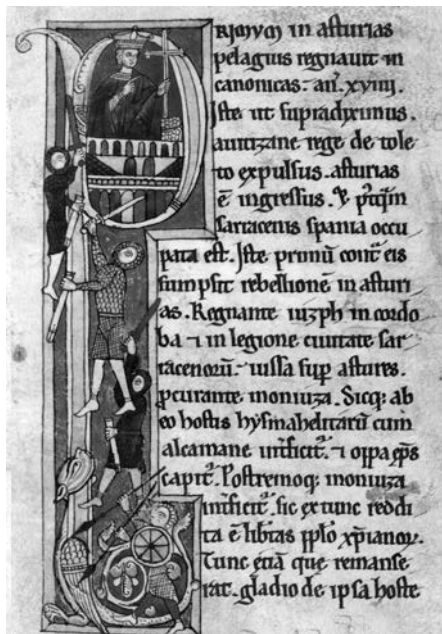 PRIMUM in asturias
pelagius regnauit in
canonicas: an̄. xviiii.
Iste ut supradiximus.
auitizane rege de tole
to expulsus. asturias
ē ingressus. ⁊ p̓tq̄m
sarracenis spania occu
pata est. Iste primū cont̄ eis
sumpsit rebellionē in asturi
as. Regnante iuzph in cordo
ba ⁊ in legione ciuitate sar
racenorū iussa sup̄ astures.
ꝓcurante moniuza. Sicq; ab
eo hostis hysmahelitarū cum
alcamane int̄ficit̄. ⁊ oppa ep̄s
capit̄. Postremoq; moniuza
int̄ficit̄. sic ex tunc reddi
ta ē lib̄tas pp̄lo xp̄ianoꝝ.
Tunc etiā que remanse
rat. gladio de ipsa hoste